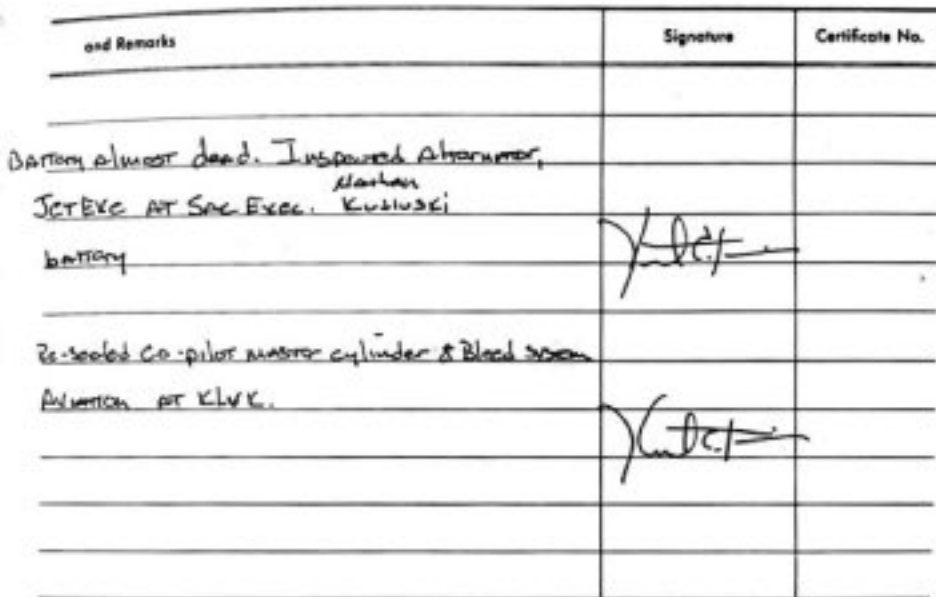 and Remarks Signature Certificate No.
Battery almost dead. Inspected Alternator,
Nathan
JetExe at Sac Exec.
battery
Re-sealed Co-pilot master cylinder & Bleed system
Aviation at KLVK.